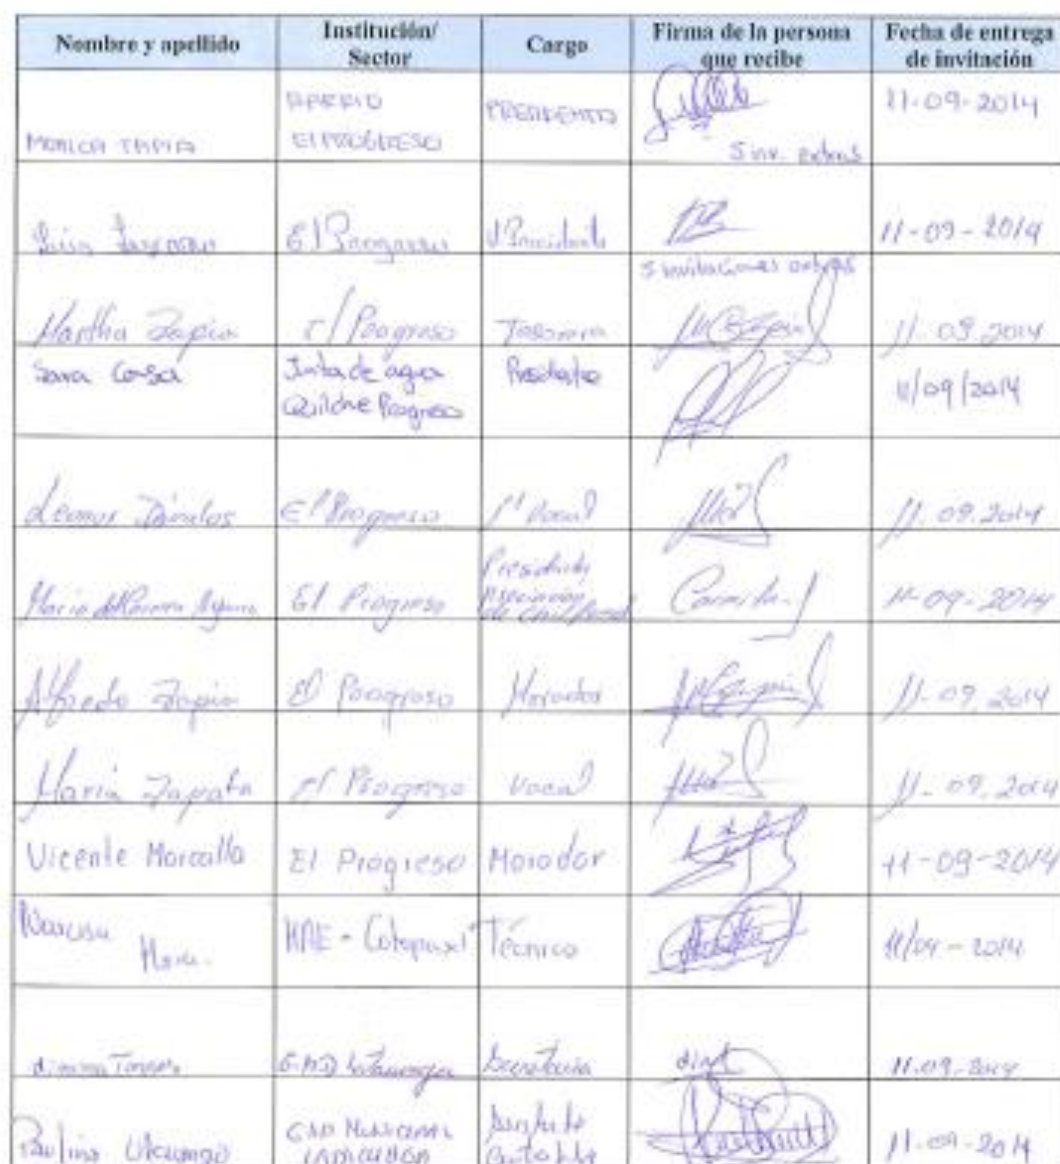 Nombre y apellido
Institución/
Sector
Cargo
Firma de la persona
que recibe
Fecha de entrega
de invitación
MONICA TAPIA
BARRIO
EL PROGRESO
PRESIDENTA
5 inv. extras
11-09-2014
Luisa
El Progreso
V Presidente
11-09-2014
5 invitaciones extras
Martha Tapia
El Progreso
Tesorera
11-09.2014
Sara
Junta de agua
Progreso
Presidente
11/09/2014
Leonor Dávalos
El Progreso
1º Vocal
11.09.2014
Maria del Carmen
El Progreso
Presidenta
Asociación
Carmita
11-09-2014
Alfredo Tapia
El Progreso
Morador
11-09.2014
María Zapata
El Progreso
Vocal
11-09.2014
Vicente Marcalla
El Progreso
Morador
11-09-2014
Narcisa
Mora.
MAE - Cotopaxi
Técnico
11/09-2014
Latacunga
Secretaria
11.09-2014
GAD Municipal
11-09-2014